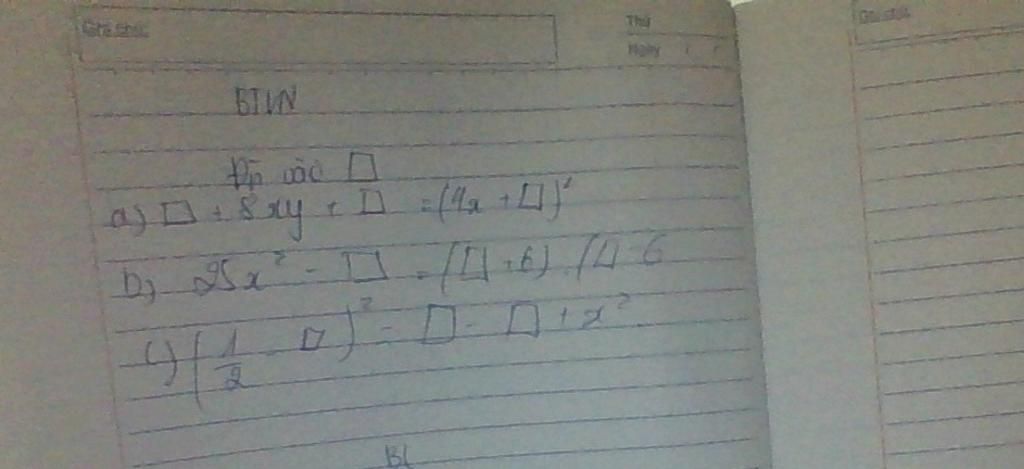 Ghi chú:
Thứ
Ngày / /
BTVN
Điền vào □
a) □ + 8xy + □ = (4x + □)²
b) 25x² - □ = (□ + 6) . (□ - 6
c) (1/2 - □)² = □ - □ + x²